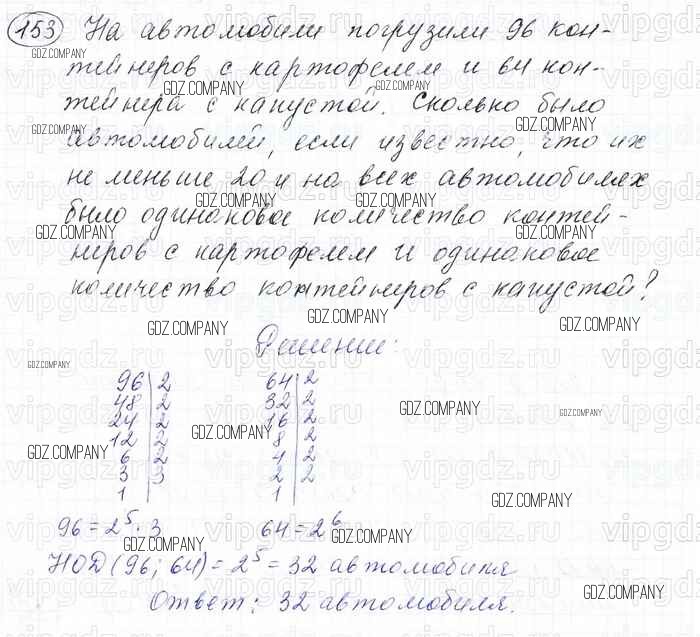 153 На автомобили погрузили 96 кон-
тейнеров с картофелем и 64 кон-
тейнера с капустой. Сколько было
автомобилей, если известно, что их
не меньше 20 и на всех автомобилях
было одинаковое количество контей-
неров с картофелем и одинаковое
количество контейнеров с капустой?
Решение:
96 | 2    64 | 2
48 | 2    32 | 2
24 | 2    16 | 2
12 | 2    8 | 2
6 | 2    4 | 2
3 | 3    2 | 2
1 |    1 |
96 = 2⁵ · 3    64 = 2⁶
НОД (96; 64) = 2⁵ = 32 автомобиля
Ответ: 32 автомобиля.
GDZ.COMPANY
vipgdz.ru